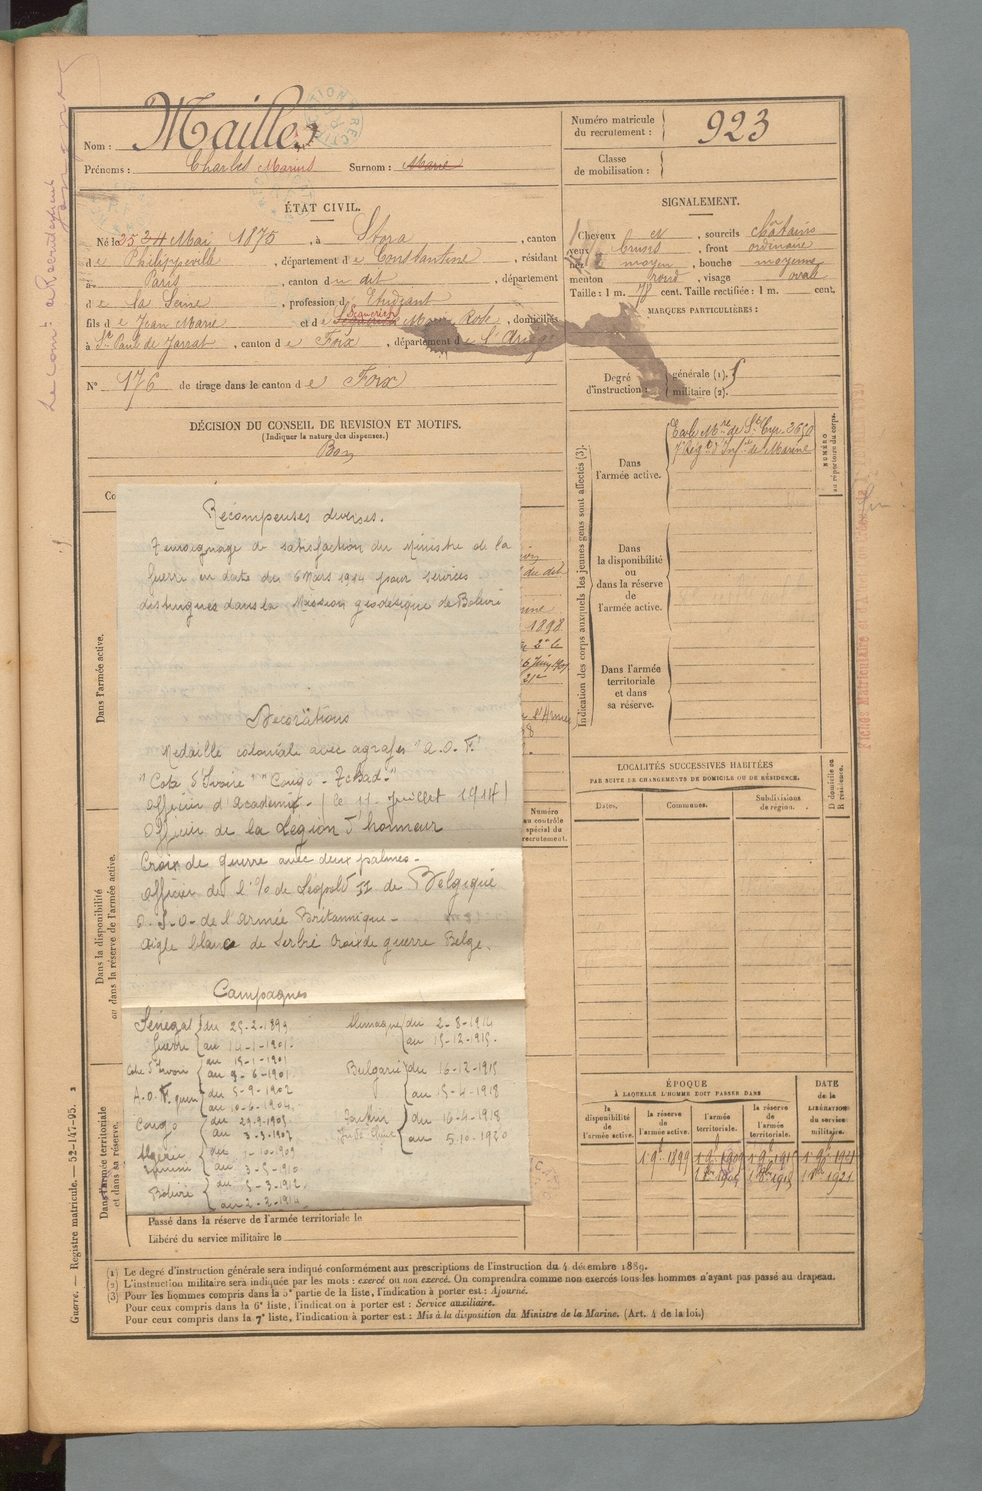 Nom : Mailles
Prénoms : Charles Marius Surnom : Marie
Numéro matricule du recrutement : 923
Classe de mobilisation :
ÉTAT CIVIL.
Né le 25 24 Mai 1875, à Stora, canton
de Philippeville, département de Constantine, résidant
à Paris, canton du dit, département
de la Seine, profession Etudiant
fils de Jean Marie et de Rose, domiciliés
à St Paul de Jarrat, canton de Foix, département de l'Ariège
No 176 de tirage dans le canton de Foix
SIGNALEMENT.
Cheveux, sourcils châtains
yeux bruns, front ordinaire
nez moyen, bouche moyenne
menton rond, visage ovale
Taille : 1 m. 78 cent. Taille rectifiée : 1 m. cent.
MARQUES PARTICULIÈRES :
Degré d'instruction : générale (1).
militaire (2).
DÉCISION DU CONSEIL DE REVISION ET MOTIFS.
(Indiquer la nature des dispenses.)
Bon
Co
Récompenses diverses.
Témoignage de satisfaction du Ministre de la
Guerre en date du 6 Mars 1914 pour services
distingués dans la Mission géodésique de Bolivie
Décorations
Médaille coloniale avec agrafes "A.O.F."
"Cote d'Ivoire" "Congo - Tchad."
Officier d'Académie - (le 11 Juillet 1914)
Officier de la Légion d'honneur
Croix de guerre avec deux palmes -
Officier de l'O/ de Léopold II de Belgique
D.S.O. de l'armée Britannique -
Aigle blanc de Serbie Croix de guerre Belge.
Campagnes
Sénégal Guerre du 25-2-1899
au 14-1-1901.
Cote d'Ivoire au 15-1-1901
au 9-6-1901
A.O.F. guerre du 5-9-1902
au 10-6-1904.
Congo du 29.9.1905
au 3-3-1907
Algérie du 1-10-1909
au 3-5-1910
Bolivie du 5-3-1912
au 2-2-1914
Allemagne du 2-8-1914
au 15-12-1915.
Bulgarie du 16-12-1915
au 15-4-1918
du 16-4-1918
au 5.10.1920
du dit
1898
Dans l'armée active.
Dans la disponibilité
ou dans la réserve de l'armée active.
Dans l'armée territoriale
et dans sa réserve.
Numéro
au contrôle
spécial du
recrutement.
Passé dans la réserve de l'armée territoriale le
Libéré du service militaire le
Indication des corps auxquels les jeunes gens sont affectés (3).
Dans
l'armée active.
Ecole Mre de St Cyr. 3650
7e Régt d'Infie de Marine
NUMÉRO
au répertoire du corps.
Dans
la disponibilité
ou
dans la réserve
de
l'armée active.
Dans l'armée
territoriale
et dans
sa réserve.
LOCALITÉS SUCCESSIVES HABITÉES
PAR SUITE DE CHANGEMENTS DE DOMICILE OU DE RÉSIDENCE.
Dates. Communes. Subdivisions de région. D domicile ou R résidence.
ÉPOQUE
À LAQUELLE L'HOMME DOIT PASSER DANS
DATE
de la
LIBÉRATION
du service
militaire.
la disponibilité de l'armée active. la réserve de l'armée active. l'armée territoriale. la réserve de l'armée territoriale.
1 9bre 1899 1 9bre 1909 1 9bre 1915 1 9bre 1921
(1) Le degré d'instruction générale sera indiqué conformément aux prescriptions de l'instruction du 4 décembre 1889.
(2) L'instruction militaire sera indiquée par les mots : exercé ou non exercé. On comprendra comme non exercés tous les hommes n'ayant pas passé au drapeau.
(3) Pour les hommes compris dans la 5e partie de la liste, l'indication à porter est : Ajourné.
Pour ceux compris dans la 6e liste, l'indication à porter est : Service auxiliaire.
Pour ceux compris dans la 7e liste, l'indication à porter est : Mis à la disposition du Ministre de la Marine. (Art. 4 de la loi.)
Guerre. — Registre matricule. — 52-147-95.